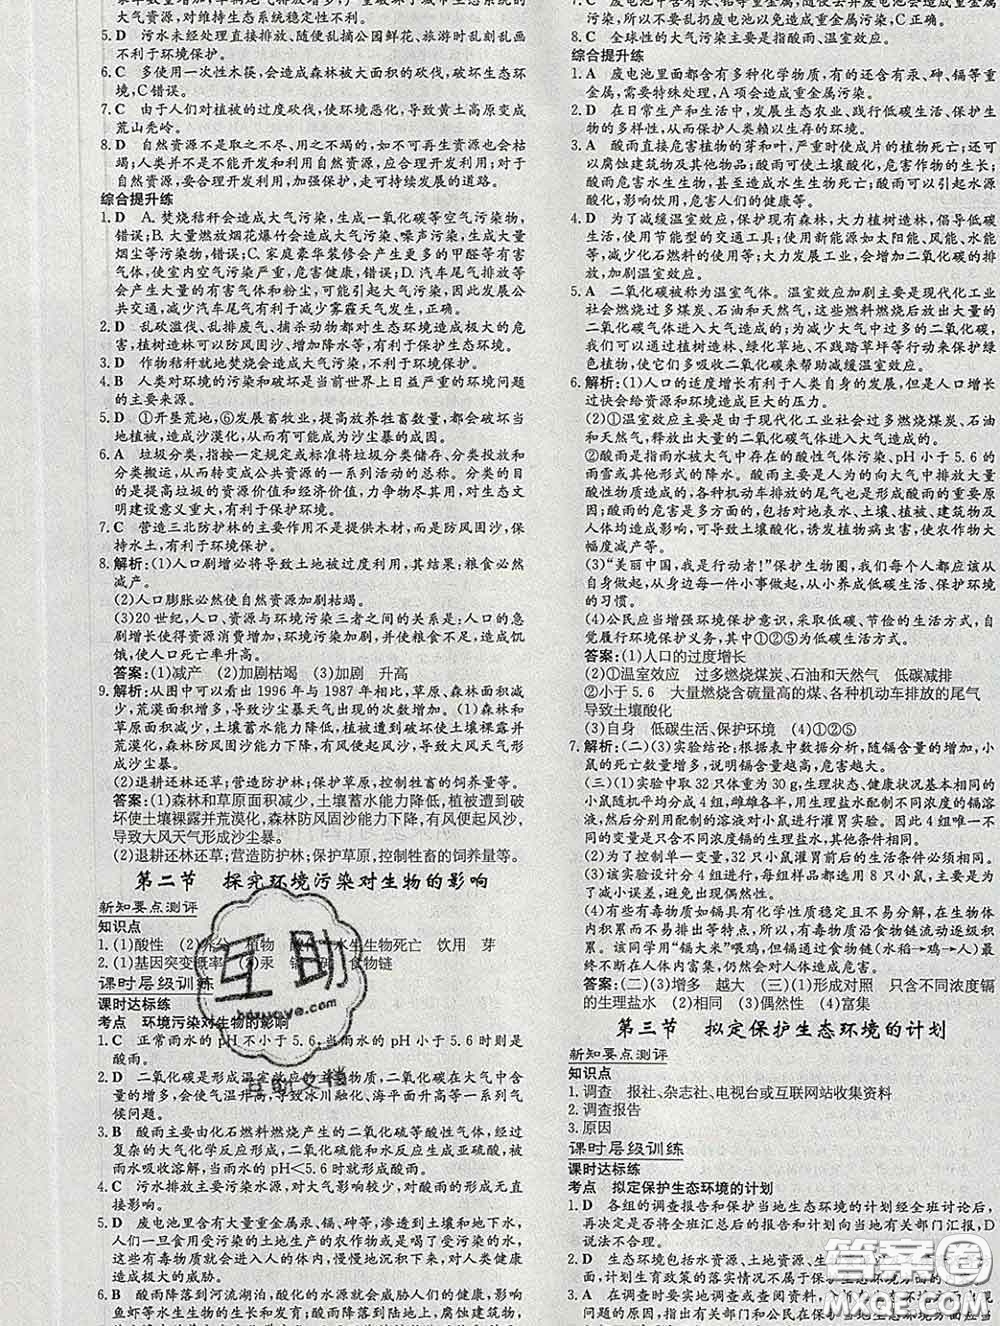 大气污染,对维持生态系统稳定性不利。
5. D 污水未经处理直接排放、随便乱摘公园鲜花、旅游时乱刻乱画
不利于环境保护。
6. C 多使用一次性木筷,会造成森林被大面积的砍伐,破坏生态环
境,C错误。
7. C 由于人们对植被的过度砍伐,使环境恶化,导致黄土高原变成
荒山秃岭。
8. D 自然资源不是取之不尽、用之不竭的,如不可再生资源也会枯
竭;人类并不是不能开发和利用自然资源,应合理开发利用;对于
自然资源,要合理开发利用,加强保护,走可持续发展的道路。
综合提升练
1. D A. 焚烧秸秆会造成大气污染,生成一氧化碳等空气污染物,
错误;B. 大量燃放烟花爆竹会造成大气污染、噪声污染,生成大量
烟尘等污染物,错误;C. 家庭豪华装修会产生更多的甲醛等有害
气体,使室内空气污染严重,危害健康,错误;D. 汽车尾气排放等
会产生大量的有害气体和粉尘,可能引起大气污染,因此发展公
共交通,减少汽车尾气有利于减少雾霾天气发生,正确。
2. D 乱砍滥伐、乱排废气、捕杀动物都对生态环境造成极大的危
害,植树造林可以防风固沙、增加降水等,有利于保护生态环境。
3. D 作物秸秆就地焚烧会造成大气污染,不利于环境保护。
4. B 人类对环境的污染和破坏是当前世界上日益严重的环境问题
的主要来源。
5. D ①开垦荒地,⑥发展畜牧业,提高放养牲畜数量,都会破坏当
地植被,造成沙漠化,从而有可能成为沙尘暴的成因。
6. A 垃圾分类,指按一定规定或标准将垃圾分类储存、分类投放和
分类搬运,从而转变成公共资源的一系列活动的总称。分类的目
的是提高垃圾的资源价值和经济价值,力争物尽其用,对生态文
明建设意义重大,有利于保护环境。
7. C 营造三北防护林的主要作用不是提供木材,而是防风固沙,保
持水土,有利于环境保护。
8. 解析:(1)人口剧增必将导致土地被过度利用,其结果:粮食必然
减产。
(2)人口膨胀必然使自然资源加剧枯竭。
(3)20 世纪,人口、资源与环境污染三者之间的关系是:人口的急
剧增长使得资源消费增加,环境污染加剧,并使粮食不足,造成饥
饿,使人口死亡率升高。
答案:(1)减产 (2)加剧枯竭 (3)加剧 升高
9. 解析:从图中可以看出 1996 年与 1987 年相比,草原、森林面积减
少,荒漠增多,导致沙尘暴天气出现的次数增加。(1)森林面积和
草原面积减少,土壤蓄水能力降低,植被遭到破坏使土壤裸露并
荒漠化,森林防风固沙能力下降,有风天气使大风天气形
成沙尘暴。
(2)退耕还林还草;营造防护林;保护草原,控制牲畜的饲养量等。
答案:(1)森林和草原面积减少,土壤蓄水能力降低,植被遭到破
坏使土壤裸露并荒漠化,森林防风固沙能力下降,
导致大风天气形成沙尘暴。
(2)退耕还林还草;营造防护林;保护草原,控制牲畜的饲养量等。
第二节 探究环境污染对生物的影响
新知要点测评
知识点
1. (1)酸性 (2) 植物 水生生物死亡 饮用 芽
2. (1)基因突变概率 ②汞 镉 食物链
课时层级训练
课时达标练
考点 环境污染对生物的影响
1. C 正常雨水的 pH 不小于 5.6,当雨水的 pH 小于 5.6 时则是
酸雨。
2. D 二氧化碳是形成温室效应的主要物质,二氧化碳在大气中含
量增多,会使气温升高,导致冰川融化、海平面升高等一系列气
候问题。
3. B 酸雨主要由化石燃料燃烧产生的二氧化硫等酸性气体,经过
复杂的大气化学反应形成,二氧化硫和水反应生成亚硫酸,被
雨水吸收溶解,当雨水的 pH<5.6 时就形成酸雨。
4. C 污水排放主要污染水源,对大气影响较少,对酸雨的形成无直
接影响。
5. D 废电池里含有大量重金属汞、镉、砷等,渗透到土壤和地下水,
人类一旦食用受污染的土地生产的农作物或是喝了受污染的水,
这些有毒物质就会进入人的体内,慢慢地沉积下来,对人类健康
造成极大的威胁。
6. B 酸雨降落到河流湖泊,酸化的水就会影响水生环境,影响
鱼虾等水生生物的生长和发育;酸雨降落到陆地上,腐蚀建筑物,
重金属污染,所以不要乱扔废电池以免造成重金属污染,C正确。
8. C 全球性的大气污染主要是指酸雨、温室效应。
综合提升练
1. A 废电池里面都含有多种化学物质,有的还含有汞、砷、镉等重
金属,需要特殊处理,A项会造成重金属污染。
2. D 在日常生产和生活中,发展生态农业、践行低碳生活、保护生
物的多样性,从而保护人类赖以生存的环境。
3. A 酸雨直接危害植物的芽和叶,严重时使成片的植物死亡;还可
以腐蚀建筑物及其他物品;酸雨可使土壤酸化,危害作物的生长;
酸雨危害水生生物,甚至造成水生生物死亡;酸雨可以引起水源
酸化,危害人类的健康。
4. D 为了减缓温室效应,保护现有森林,大力植树造林,倡导低碳生
活,使用节能型的交通工具;使用新能源如太阳能、风能、水能
等,减少化石燃料的使用等;大力发展工业,会增加二氧化碳的排
放,加剧温室效应。
5. A 二氧化碳被称为温室气体。温室效应加剧主要是现代化工业
社会燃烧过多煤炭、石油和天然气,这些燃料燃烧后放出大量的
二氧化碳气体进入大气造成的;为减少大气中过多的二氧化碳,
我们可以通过植树造林、绿化草地、不践踏草坪等行动来保护绿
色植物,使它们多吸收二氧化碳来帮助减缓温室效应。
6. 解析:(1)人口的适度增长有利于人类自身的发展,但是人口增长
过快会给资源和环境造成巨大的压力。
(2)①温室效应主要是由于现代化工业社会过多燃烧煤炭、石油
和天然气,释放出大量的二氧化碳气体进入大气造成的。
②酸雨是指雨水被大气中存在的酸性气体污染、pH 小于 5.6 的
雨雪或其他形式的降水。酸雨主要是人为的向大气中排放大量
酸性物质造成的,各种机动车排放的尾气也是形成酸雨的重要原
因;酸雨的危害是多方面的,包括对地表水、土壤、植被、建筑物及
人体均造成影响,可导致土壤酸化,诱发植物病虫害,使农作物大
幅度减产等。
(3)“美丽中国,我是行动者!”保护生物圈,我们每个人都应该从
自身做起,从身边的每一件小事做起,从小养成低碳生活、保护环境
的习惯。
(4)公民应当增强环境保护意识,采取低碳、节俭的生活方式,自
觉履行环境保护义务,其中①②⑤为低碳生活方式。
答案:(1)人口的过度增长
(2)①温室效应 过多燃烧煤炭、石油和天然气 低碳减排
②小于 5.6 大量燃烧含硫量高的煤、各种机动车排放的尾气
导致土壤酸化
(3)自身 低碳生活、保护环境 (4)①②⑤
7. 解析:(二)(3)实验结论:根据表中数据分析,随镉含量的增加,小
鼠的死亡数量增多,说明镉含量越高,危害越大。
(三)(1)实验中取 32 只体重为 30 g,生理状态、健康状况基本相同的
小鼠随机平均分成 4 组,雌雄各半,用生理盐水配制不同浓度的镉溶
液,然后分别用配制的溶液对小鼠进行灌胃实验。因此 4 组唯一不
同的变量是只含不同浓度镉的生理盐水,其他条件相同。
(2)为了控制单一变量,32 只小鼠灌胃前后的生活条件必须相同。
(3)该实验设计分 4 组进行,每组样品都选用 8 只小鼠,主要是为
了减小误差,避免出现偶然性。
(4)有些有毒物质如镉具有化学性质稳定且不易分解,在生物体
内积累而不易排出等特点。所以,有毒物质沿食物链流动逐级积
累。该同学听从“镉大米”喂鸡,但镉通过食物链(水稻→鸡→人)最
终不断在人体内富集,仍然会对人体造成危害。
答案:(二)(3)增多 越大 (三)(1)形成对照 只含不同浓度镉
的生理盐水 (2)相同 (3)偶然性 (4)富集
第三节 拟定保护生态环境的计划
新知要点测评
知识点
1. 调查 报社、杂志社、电视台或互联网站收集资料
2. 调查报告
3. 原因
课时层级训练
课时达标练
考点 拟定保护生态环境的计划
1. D 各组的调查报告和保护当地生态环境的计划经全班讨论后,
再决定是否将全班汇总后的报告和计划向当地有关部门汇报,D
说法不合理。
2. B 生态环境包括水资源、土地资源、生
面,计划生育政策的落实情况不属于保护生态环境方面的
3. A 在调查时要实地调查或查阅资料,
问题的原因,指出有关部门和公民在保护生态环境方面应当
互助
hzwaye.com
互助文档
答案圈
MXQE.COM